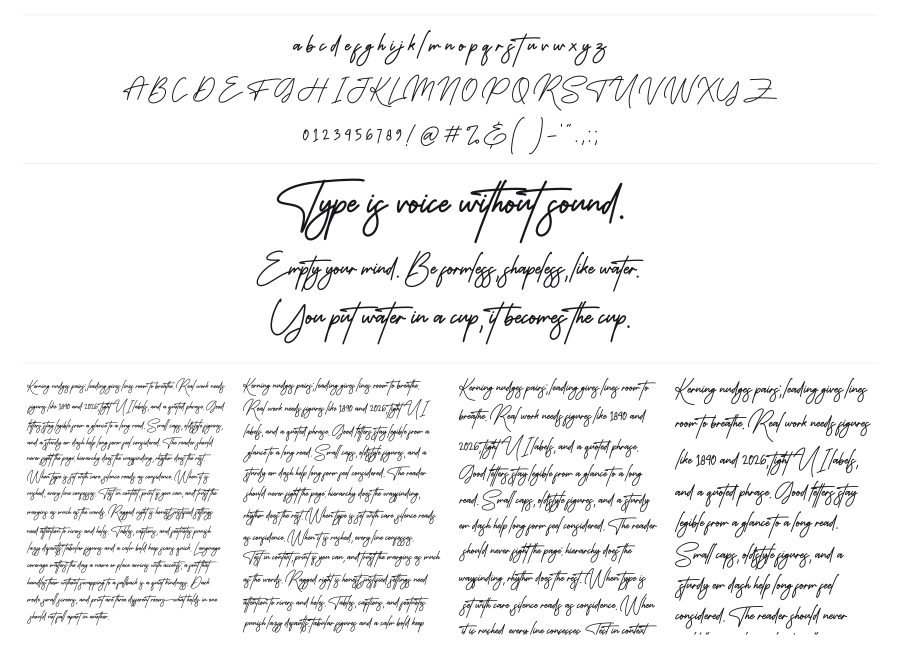 abcdefghijklmnopqrstuvwxyz
ABCDEFGHIJKLMNOPQRSTUVWXYZ
0123456789!@#%&()-'".,:;
Type is voice without sound.
Empty your mind. Be formless, shapeless, like water.
You put water in a cup, it becomes the cup.
Kerning nudges pairs; leading gives lines room to breathe. Real work needs
figures like 1890 and 2026, tight UI labels, and a quoted phrase. Good
letters stay legible from a glance to a long read. Small caps, oldstyle figures,
and a sturdy em dash help long form feel considered. The reader should
never fight the page; hierarchy does the wayfinding, rhythm does the rest.
When type is set with care, silence reads as confidence. When it is
rushed, every line confesses. Test in context, print if you can, and trust the
margins as much as the words. Ragged right is honest; justified settings
need attention to rivers and holes. Tables, captions, and footnotes punish
lazy defaults; tabular figures and a calm bold keep things quiet. Language
coverage matters the day a name or place arrives with accents; a font that
handles them without swapping to a fallback is a quiet kindness. Dark
mode, small screens, and print are three different rooms—what holds in one
should not fall apart in another.
Kerning nudges pairs; leading gives lines room to breathe.
Real work needs figures like 1890 and 2026, tight UI
labels, and a quoted phrase. Good letters stay legible from a
glance to a long read. Small caps, oldstyle figures, and a
sturdy em dash help long form feel considered. The reader
should never fight the page; hierarchy does the wayfinding,
rhythm does the rest. When type is set with care, silence reads
as confidence. When it is rushed, every line confesses.
Test in context, print if you can, and trust the margins as much
as the words. Ragged right is honest; justified settings need
attention to rivers and holes. Tables, captions, and footnotes
punish lazy defaults; tabular figures and a calm bold keep
Kerning nudges pairs; leading gives lines room to
breathe. Real work needs figures like 1890 and
2026, tight UI labels, and a quoted phrase.
Good letters stay legible from a glance to a long
read. Small caps, oldstyle figures, and a sturdy
em dash help long form feel considered. The reader
should never fight the page; hierarchy does the
wayfinding, rhythm does the rest. When type is
set with care, silence reads as confidence. When
it is rushed, every line confesses. Test in context,
Kerning nudges pairs; leading gives lines
room to breathe. Real work needs figures
like 1890 and 2026, tight UI labels,
and a quoted phrase. Good letters stay
legible from a glance to a long read.
Small caps, oldstyle figures, and a
sturdy em dash help long form feel
considered. The reader should never